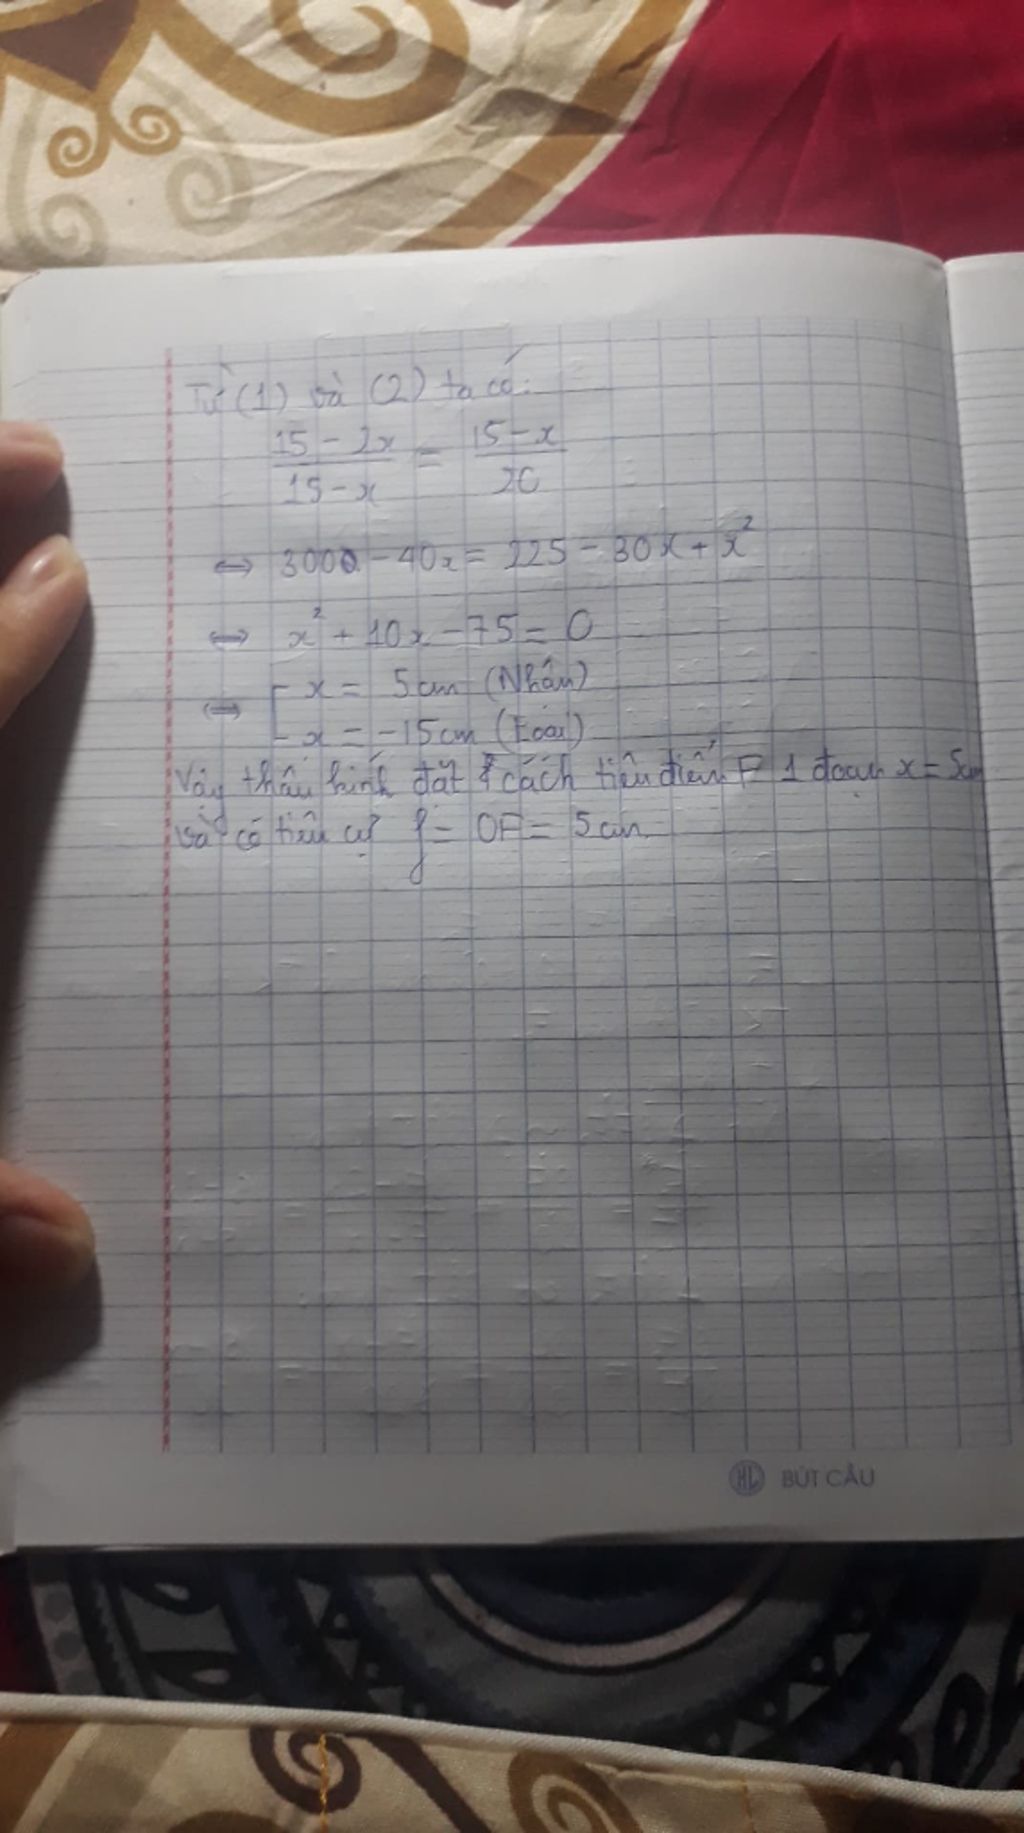 Từ (1) và (2) ta có:
15 - 2x / 15 - x = 15 - x / 20
⇔ 3000 - 40x = 225 - 30x + x²
⇔ x² + 10x - 75 = 0
⇔ [ x = 5cm (Nhận)
x = -15cm (Loại)
Vậy thấu kính đặt cách tiêu điểm F 1 đoạn x = 5cm
và có tiêu cự f = OF = 5cm
HL BÚT CÂU